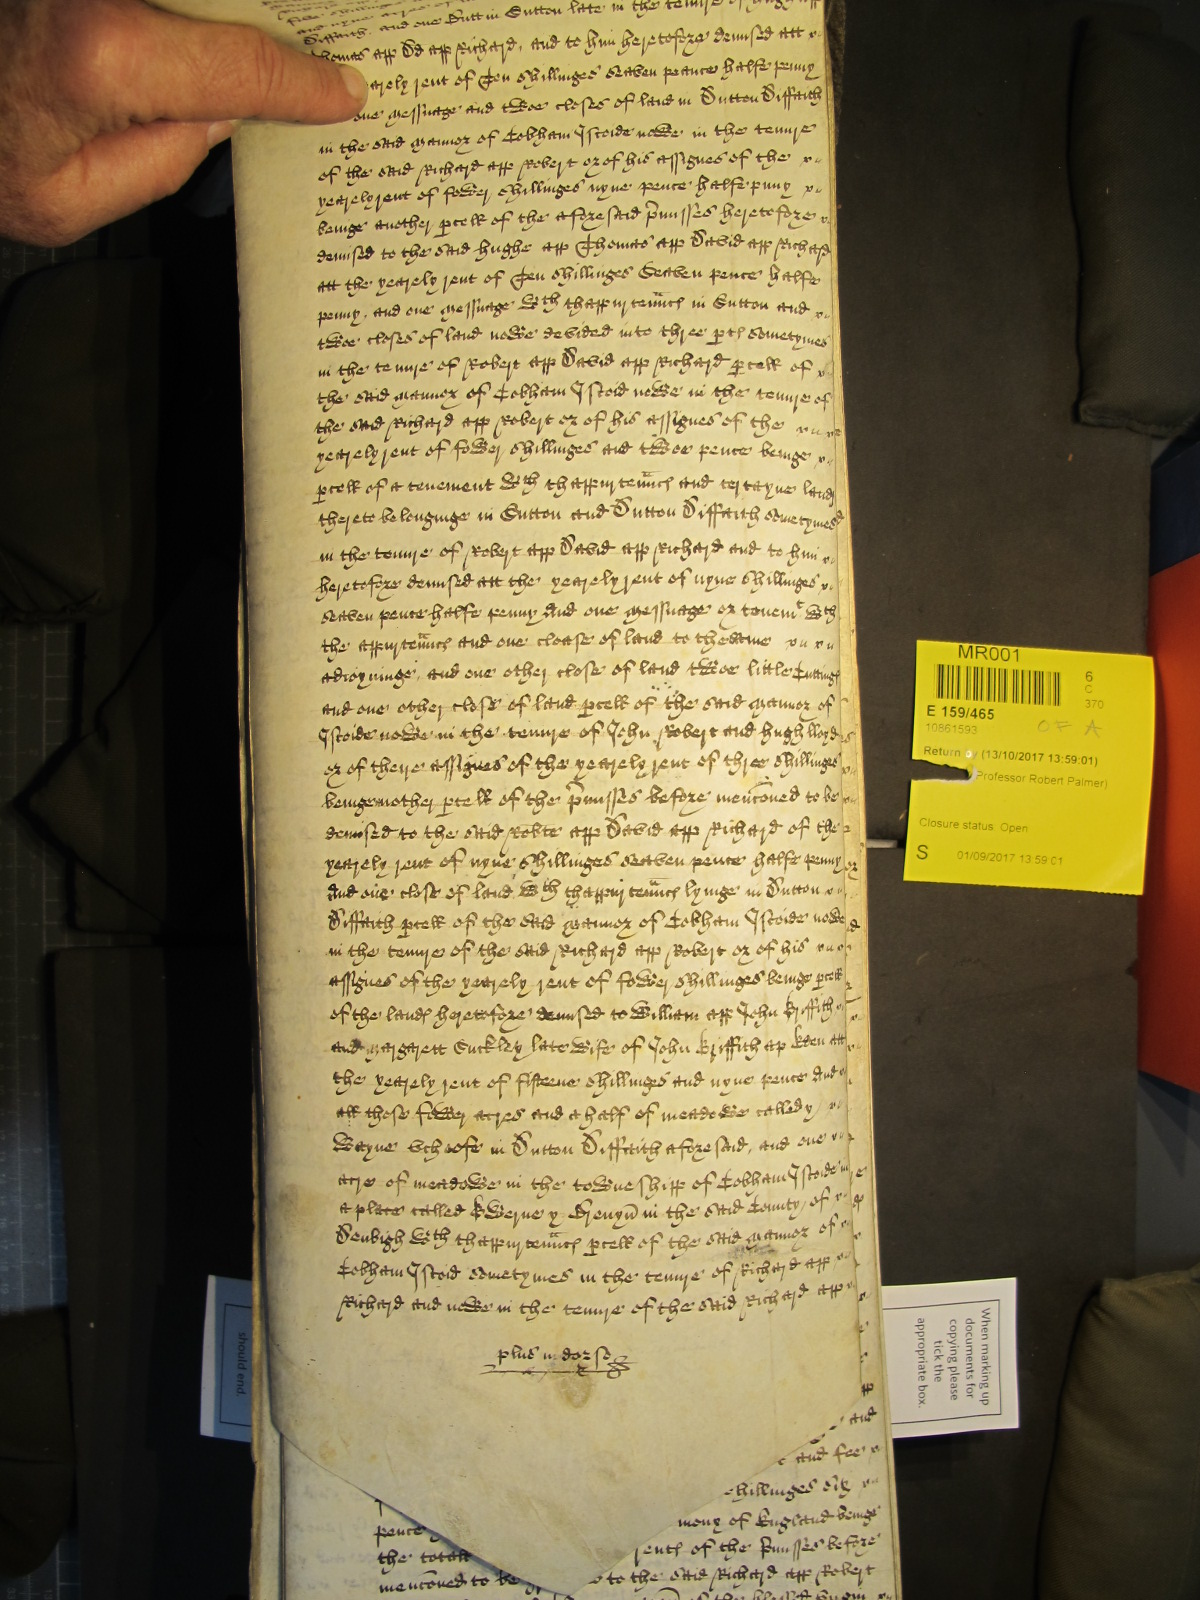 Diffaith, and one Butt in Sutton late in the tenure of
Thomas app Dd app Richard, and to him heretofore demised att
yearely rent of Ten shillinges seaven peance halfe penny
one messuage and twoe closes of land in Dutton Diffaith
in the said mannor of Cobham Iscoide nowe in the tenure
of the said Richard app Robert or of his assignes of the
yearely rent of fower shillinges nyne pence halfe penny
beinge another pcell of the aforesaid pmisses heretofore
demised to the said hughe app Thomas app David app Richard
att the yearely rent of Ten shillinges Seaven pence halfe
penny, and one messuage wth thappurtenñcs in Sutton and
twoe closes of land nowe devided into three pts sometymes
in the tenure of Robert app David app Richard pcell of
the said mannor of Cobham Iscoid nowe in the tenure of
the said Richard app Robert or of his assignes of the
yearely rent of fower shillinges and twoe pence beinge
pcell of a tenement wth thappurtenñcs and certayne lands
thereto belonginge in Sutton and Dutton Diffaith sometymes
in the tenure of Robert app David app Richard and to him
heretofore demised att the yearely rent of nyne shillinges
seaven pence halfe penny And one messuage or tenemt wth
the appurtenñcs and one cloase of land to thesame
adioyninge, and one other close of land twoe little Cuttings
and one other close of land pcell of the said mannor of
Iscoide nowe in the tenure of John Robert and hugh lloyd
or of theire assignes of the yearely rent of three shillinges
beinge another pcell of the pmisses before menconed to be
demised to the said Robte app David app Richard of the
yearely rent of nyne shillinges seaven pence halfe penny
And one close of land wth thappurtenñcs lyinge in Dutton
Diffaith pcell of the said mannor of Cobham Iscoide nowe
in the tenure of the said Richard app Robert or of his
assignes of the yearely rent of fower shillinges beinge pcell
of the lands heretofore demised to William app John Griffith
and Margarett Suckley late wife of John Griffith ap
the yearely rent of fifteene shillinges and nyne pence And
all those fower acres and a half of meadowe called y
Wayne in Dutton Diffaith aforesaid, and one
acre of meadowe in the towneshipp of Cobham Iscoide in
a place called Gwerne y in the said County of
Denbigh wth thappurtenñcs pcell of the said mannor of
Cobham Iscoid sometymes in the tenure of Richard app
Richard and nowe in the tenure of the said Richard app
plus in dorso
and
and fee
shillinges six
pence mony of England beinge
the totall rents of the pmisses before
menconed to be to the said Richard app Robert
MR001
6
C
370
E 159/465
OF A
10861593
Return by (13/10/2017 13:59:01)
Professor Robert Palmer)
Closure status: Open
S 01/09/2017 13:59:01
When marking up
documents for
copying please
tick the
appropriate box.
should end.